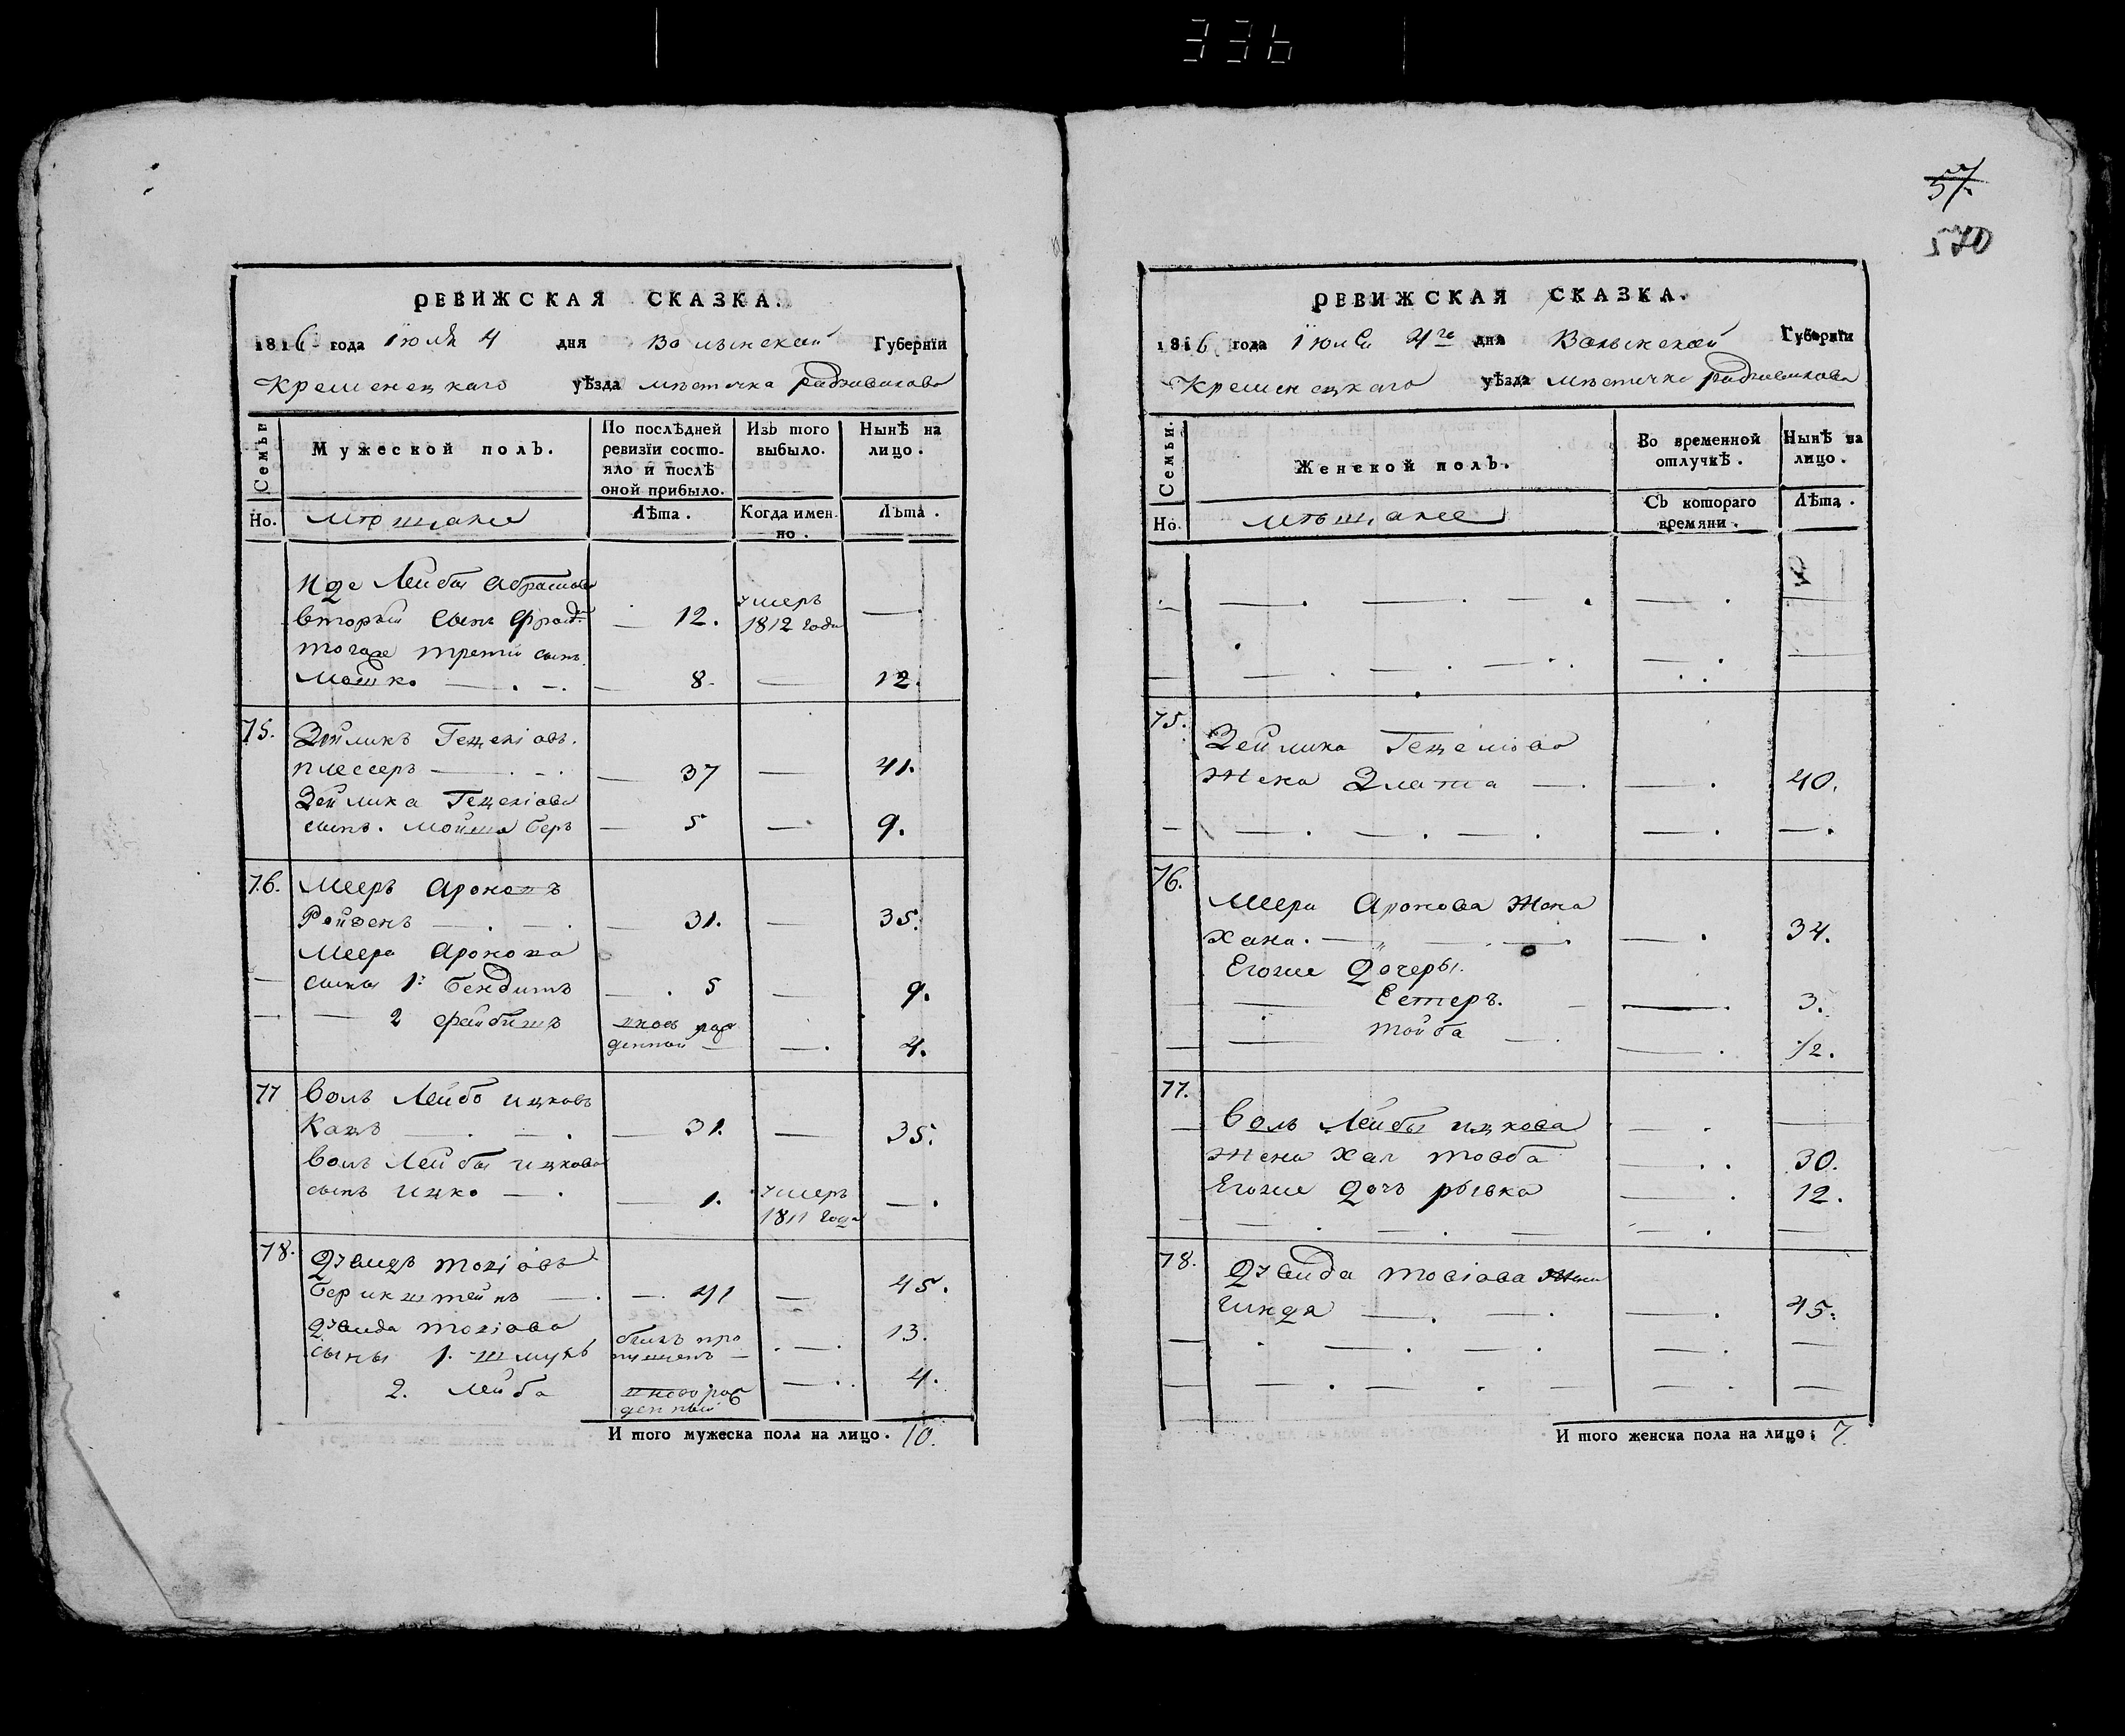 336
57.
570
РЕВИЖСКАЯ СКАЗКА.
1816 года Iюля 4 дня Волынской Губернїи
Кременецкаго уѣзда мѣстечка радзивилова
Семьи
Мужеской полъ.
По послѣдней ревизїи состо-
яло и послѣ
оной прибыло.
Изъ того
выбыло.
Нынѣ на
лицо.
Но.
мѣщанее
Лѣта.
Когда имен-
но.
Лѣта.
Иде Лейбы Абрамова
вторый сынъ 12. умеръ 1812 года —
тогоже третий сынъ
Мошко — 8. — 12.
75. Зейликъ Гецеліовъ
плессеръ — 37 — 41.
Зейлика Гецеліова
сынъ. Мойша беръ — 5 — 9.
76. Мееръ Ароновъ
Ройзенъ — 31. — 35.
Меера Аронова
сыны 1: Бендитъ — 5 — 9.
— 2 Файбишъ вновь рож
денный — 4.
77 Воль Лейбо ицковъ
Кацъ — 31. — 35.
Воль Лейбы ицкова
сынъ ицко — 1. умеръ 1811 года —
78. Дувидъ товіовъ
Берикштейнъ — 41 — 45.
Дувида товіова
сыны 1. шмуль былъ про
пущенъ — 13.
2. Лейба вново рож
денный — 4.
И того мужеска пола на лицо. 10.
РЕВИЖСКАЯ СКАЗКА.
1816 года Iюля 4го дня Волынской Губернїи
Кременецкаго уѣзда мѣстечка радзивилова
Семьи.
Женской полъ.
Во временной
отлучкѣ.
Нынѣ на
лицо.
Но.
мѣщанее
Съ котораго
времяни.
Лѣта.
75. Зейлика Гецеліова
жена Злата — 40.
76. Меера Аронова жена
Хана. — 34.
Егоже дочеры.
Естеръ. — 3.
тойба — 1/2.
77. Воль Лейбы ицкова
жена Хая товба — 30.
Егоже дочь рывка — 12.
78. Дувида товіова жена
Гиндя — 45.
И того женска пола на лицо: 7.